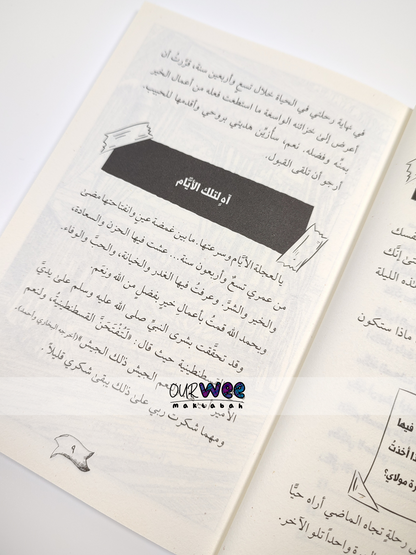 في نهاية رحلتي في الحياة خلال تسع وأربعين سنة، قرّرتُ أن
أعرض إلى خزائنه الواسعة ما استطعت فعله من أعمال الخير
بمنّه وفضله. نعم، سأزيّن هديتي بروحي وأقدمها للحبيب.
أرجو أن تلقى القبول.
آهِ لتلك الأيَّام
يا لعجلة الأيّام وسرعتها، ما بين غمضة عينٍ وانفتاحتها مضىٰ
من عمري تسعٌ وأربعون سنة... عشت فيها الحزن والسعادة،
والخير والشرَّ. وعرفتُ فيها الغدر والخيانة، والحبَّ والوفاء.
وبحمد الله قمتُ بأعمال خيرٍ بفضلٍ من الله ونعَم.
وقد تحققت بشرى النبي صلى الله عليه وسلم علىٰ يديَّ
القسطنطينية حيث قال: «لَتُفْتَحَنَّ القسطنطينيةُ، ولنعم
الأمير نعم الجيش ذلك الجيش»
ومهما شكرت ربي علىٰ ذلك يبقىٰ شكري قليلًا.
٩
OUR WEE
maktabah
ـسك
ـىٰ أنَّك
هذه الليلة
ماذا ستكون
فيها
ـذا أخذتُ
ـرة مولاي؟
رحلةٍ تجاه الماضي أراه حيًّا
واحداً تلو الآخر.